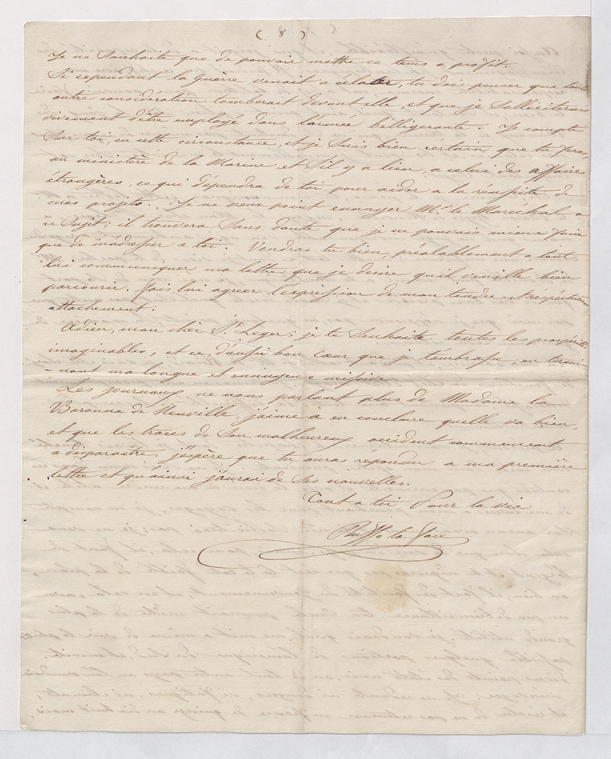 ( 8 )
Je ne Souhaite que de pouvoir mettre ce tems a profit.
Si cependant la guerre venait a éclater, tu dois penser que toute
autre considération tomberait devant elle, et que je Solliciterais
vivement d'être employé dans l'armée belligerante. Je compte
Sur toi, en cette circonstance, et je Suis bien certain que tu
au ministère de la Marine et S'il y a lieu, a celui des affaires
étrangères, ce qui dépendra de toi pour aider a la réussite de
mes projets. Je ne veux point ennuyer Mr. le Maréchal a
ce Sujet; il trouvera Sans doute que je ne pouvais mieux faire
que de m'adresser a toi. Veudras tu bien, préalablement a tout,
lui communiquer ma lettre, que je desire qu'il veuille bien
parcourir. fais lui agréer l'expression de mon tendre et respectueux
attachement.
Adieu, mon cher St. Leger; je te Souhaite toutes les prospérités
imaginables, et ce, d'aussi bon cœur que je t'embrasse, en termi-
-nant ma longue et ennuyeuse missive.
Les journaux ne nous parlant plus de Madame la
Baronne de Neuville, j'aime a en conclure qu'elle va bien,
et que les traces de Son malheureux accident commencent
a disparaître. j'espère que tu auras repondu a ma première
lettre et qu'ainsi j'aurai de Ses nouvelles.
Tout a toi Pour la vie
Ruffo la Fare